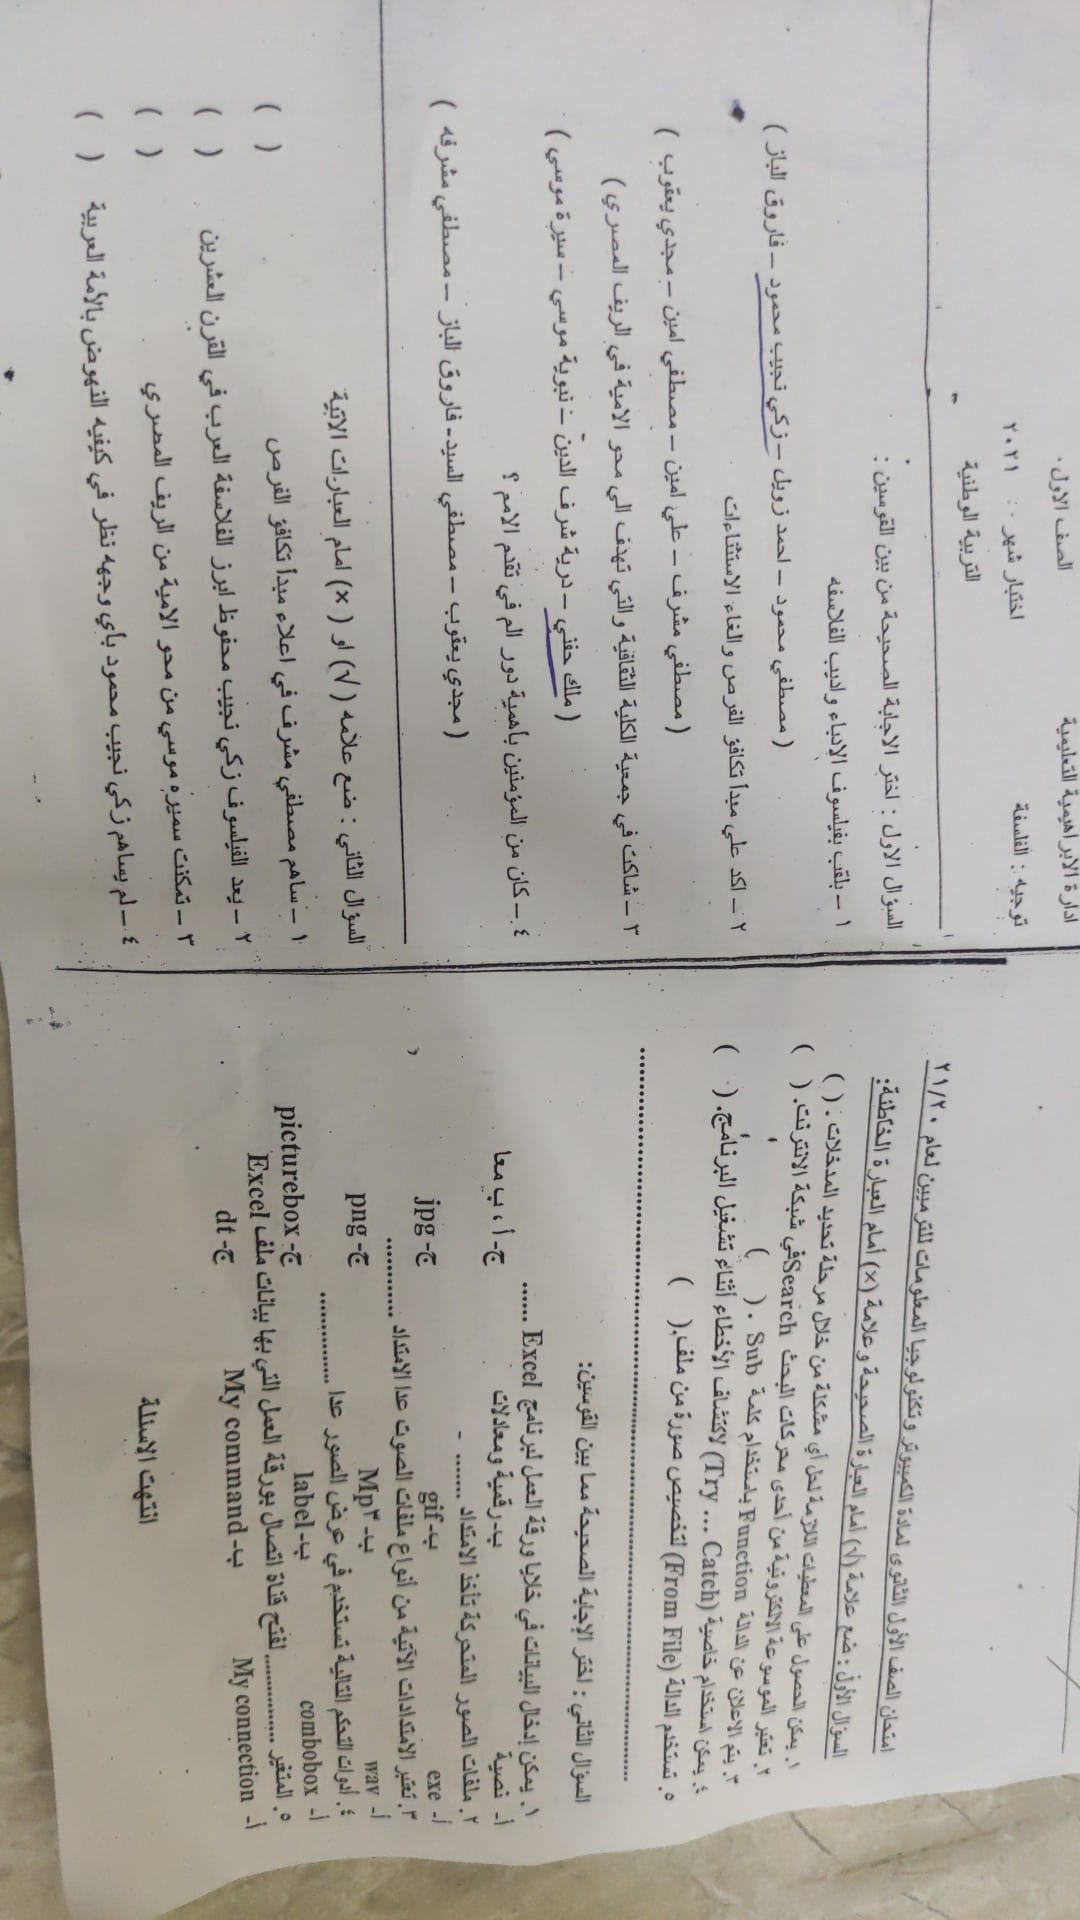 ادارة الابراهيمية التعليمية
الصف الاول .
توجيه : الفلسفة
اختبار شهر ٢٠٢١
التربية الوطنية
السؤال الاول : اختر الاجابة الصحيحة من بين القوسين :
١ – يلقب بفيلسوف الادباء واديب الفلاسفه
( مصطفي محمود – احمد زويل – زكي نجيب محمود – فاروق الباز )
٢ – اكد علي مبدأ تكافؤ الفرص والغاء الاستثناءات
( مصطفي مشرف – علي امين – مصطفي امين – مجدي يعقوب )
٣ – شاكت في جمعية الكلية الثقافية والتي تهدف الي محو الامية في الريف المصري )
( ملك حفني – درية شرف الدين – نبوية موسي – سيرة موسي )
٤ – كان من المؤمنين بأهمية دور الم في تقدم الامم ؟
( مجدي يعقوب – مصطفي السيد - فاروق الباز – مصطفي مشرفه )
السؤال الثاني : ضع علامه ( √ ) او ( × ) امام العبارات الاتية
١ – ساهم مصطفي مشرف في اعلاء مبدأ تكافؤ الفرص ( )
٢ – يعد الفيلسوف زكي نجيب محفوظ ابرز الفلاسفة العرب في القرن العشرين ( )
٣ – تمكنت سميره موسي من محو الامية من الريف المصري ( )
٤ – لم يساهم زكي نجيب محمود بأي وجهه نظر في كيفيه النهوض بالأمة العربية ( )
امتحان الصف الأول الثانوى لمادة الكمبيوتر وتكنولوجيا المعلومات للترميين لعام ٢١/٢٠
السؤال الأول : ضع علامة (√) أمام العبارة الصحيحة وعلامة (×) أمام العبارة الخاطئة:
١. يمكن الحصول على المعطيات اللازمة لحل أي مشكلة من خلال مرحلة تحديد المدخلات . ( )
٢. تعتبر الموسوعة الالكترونية من أحدى محركات البحث Search في شبكة الانترنت. ( )
٣. يتم الاعلان عن الدالة Function باستخدام كلمة Sub . ( )
٤. يمكن استخدام خاصية (Try ... Catch) لاكتشاف الأخطاء أثناء تشغيل البرنامج. ( )
٥. تستخدم الدالة (From File) لتخصيص صورة من ملف. ( )
السؤال الثاني : اختر الإجابة الصحيحة مما بين القوسين:
١. يمكن إدخال البيانات في خلايا ورقة العمل لبرنامج Excel ......
أ- نصية ب- رقمية ومعادلات ج- أ ، ب معا
٢. ملفات الصور المتحركة تأخذ الامتداد ........
أ- exe ب- gif ج- jpg
٣. تعتبر الامتدادات الآتية من أنواع ملفات الصوت عدا الامتداد ...........
أ- wav ب- Mp٣ ج- png
٤. أدوات التحكم التالية تستخدم في عرض الصور عدا ..............
أ- combobox ب- label ج- picturebox
٥. المتغير .............. لفتح قناة اتصال بورقة العمل التي بها بيانات ملف Excel
أ- My connection ب- My command ج- dt
انتهت الاسئلة